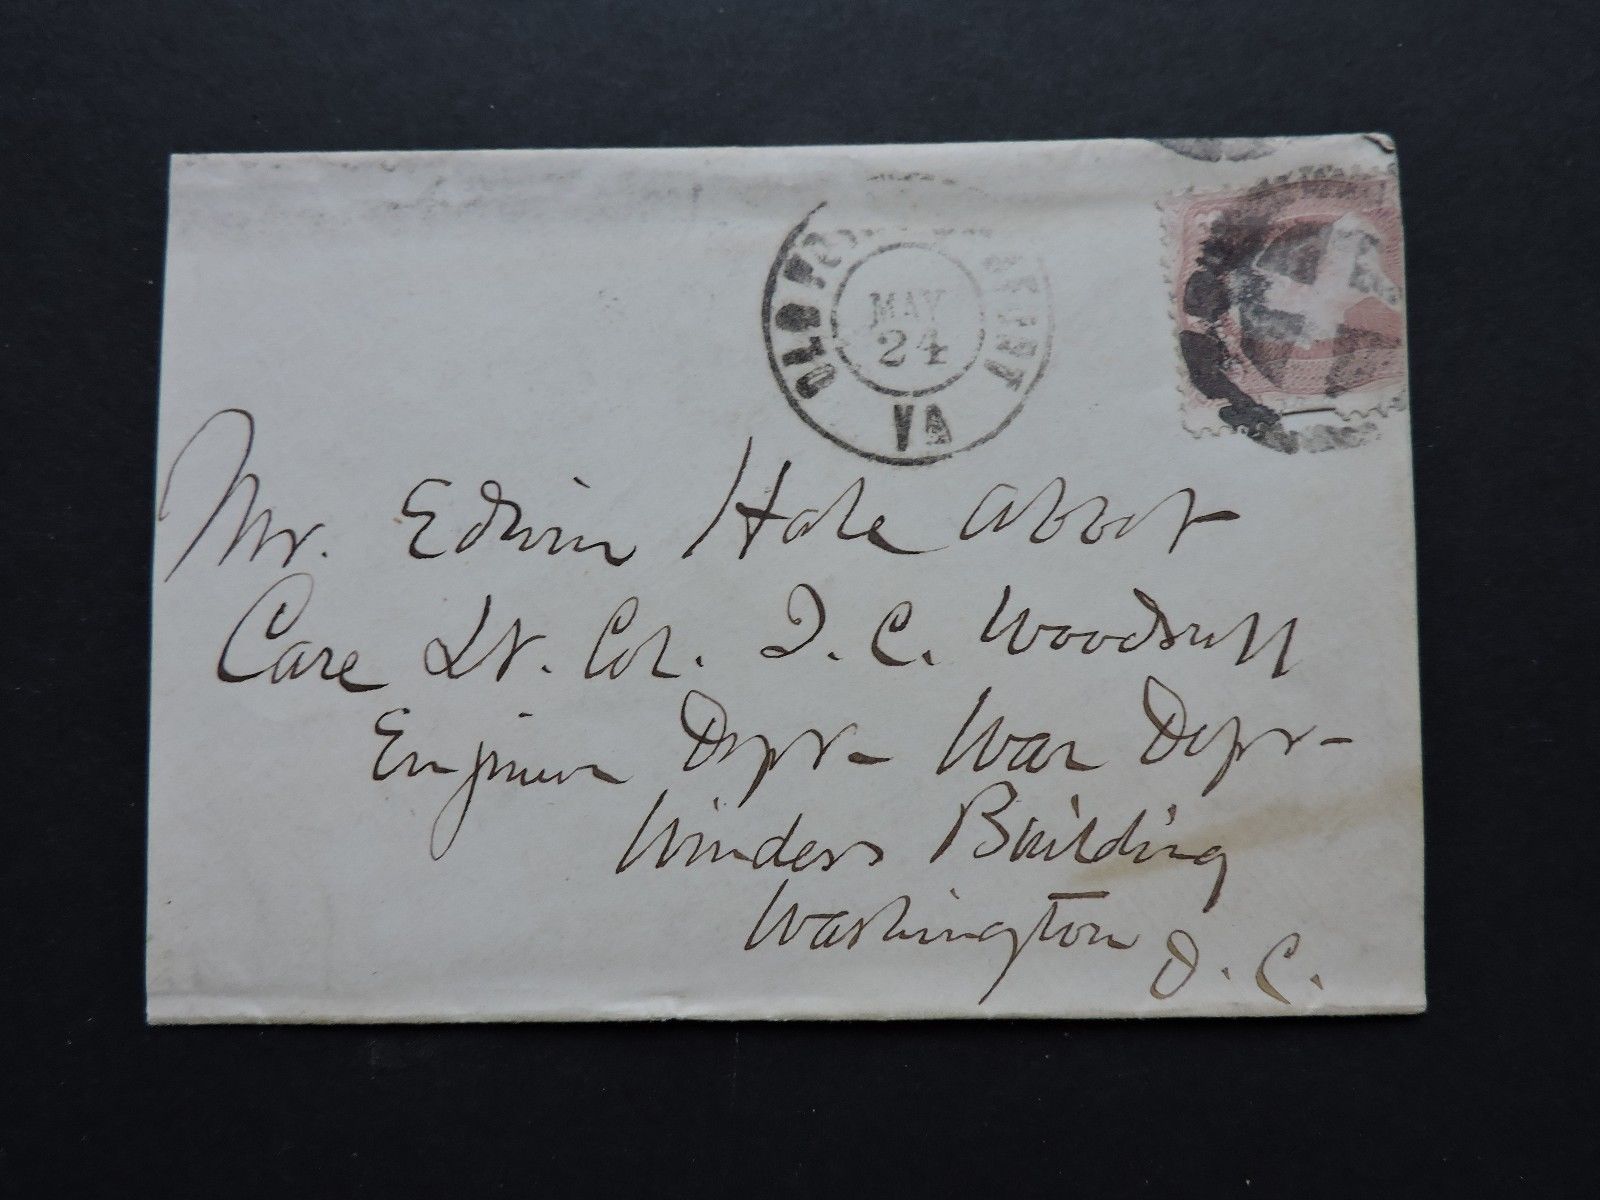 OLD POINT COMFORT
MAY
24
VA
Mr. Edwin Hale Abbot
Care Lt. Col. I. C. Woodruff
Engineer Dept- War Dept-
Winders Building
Washington
D. C.